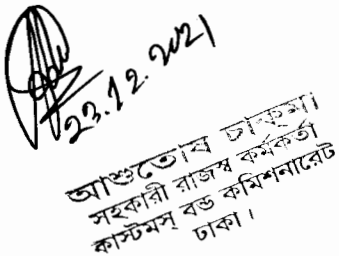 23.12.2021
আশুতোষ চাকমা
সহকারী রাজস্ব কর্মকর্তা
কাস্টমস্ বন্ড কমিশনারেট
ঢাকা।